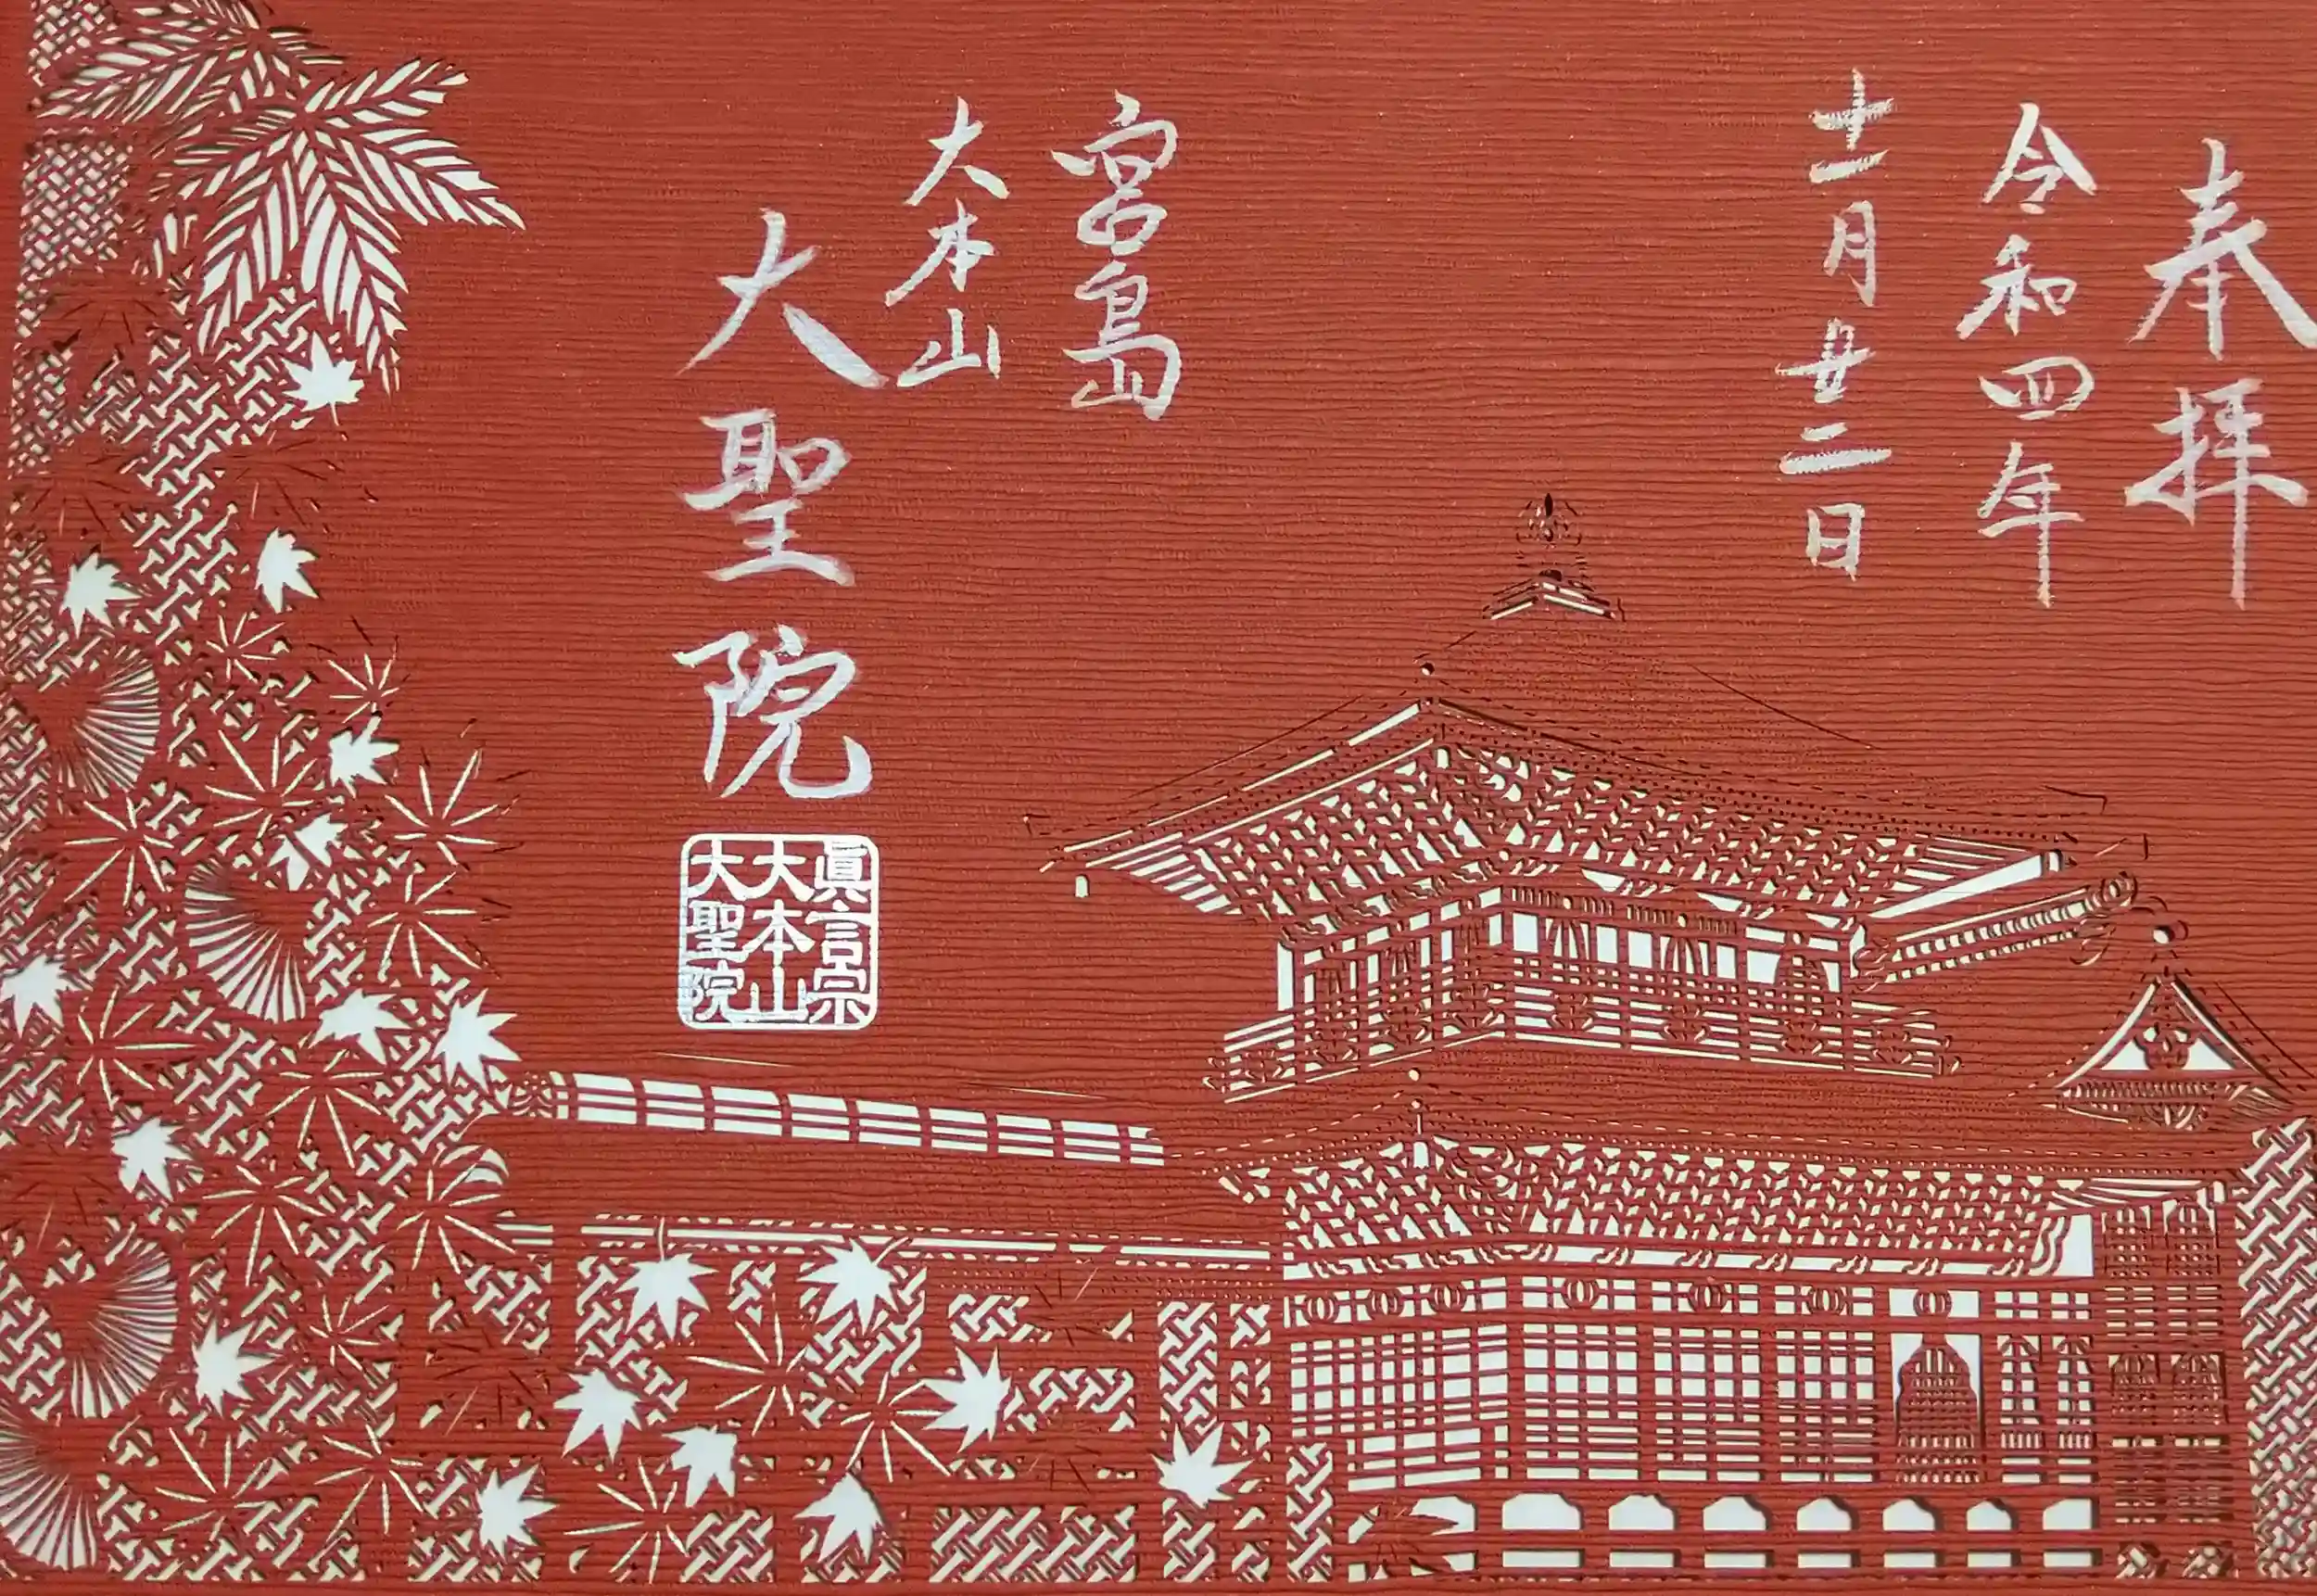 奉拝
令和四年
十一月廿二日
宮島
大本山
大聖院
眞言宗
大本山
大聖院